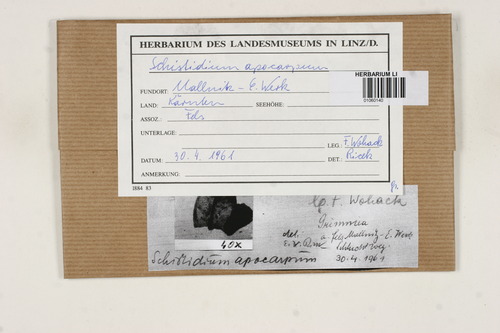 HERBARIUM DES LANDESMUSEUMS IN LINZ/D.
Schistidium apocarpum
HERBARIUM LI
01060140
FUNDORT: Mallnitz - E. Werk
LAND: Kärnten SEEHÖHE:
ASSOZ.: Fds
UNTERLAGE:
LEG.: F. Wohack
DATUM: 30. 4. 1961 DET.: Ricek
ANMERKUNG:
2884 83
lg. F. Wohack
Grimmia
det. a. fds Mallnitz - E. Werk
E. v.
40x
Schistidium apocarpum 30. 4. 1961